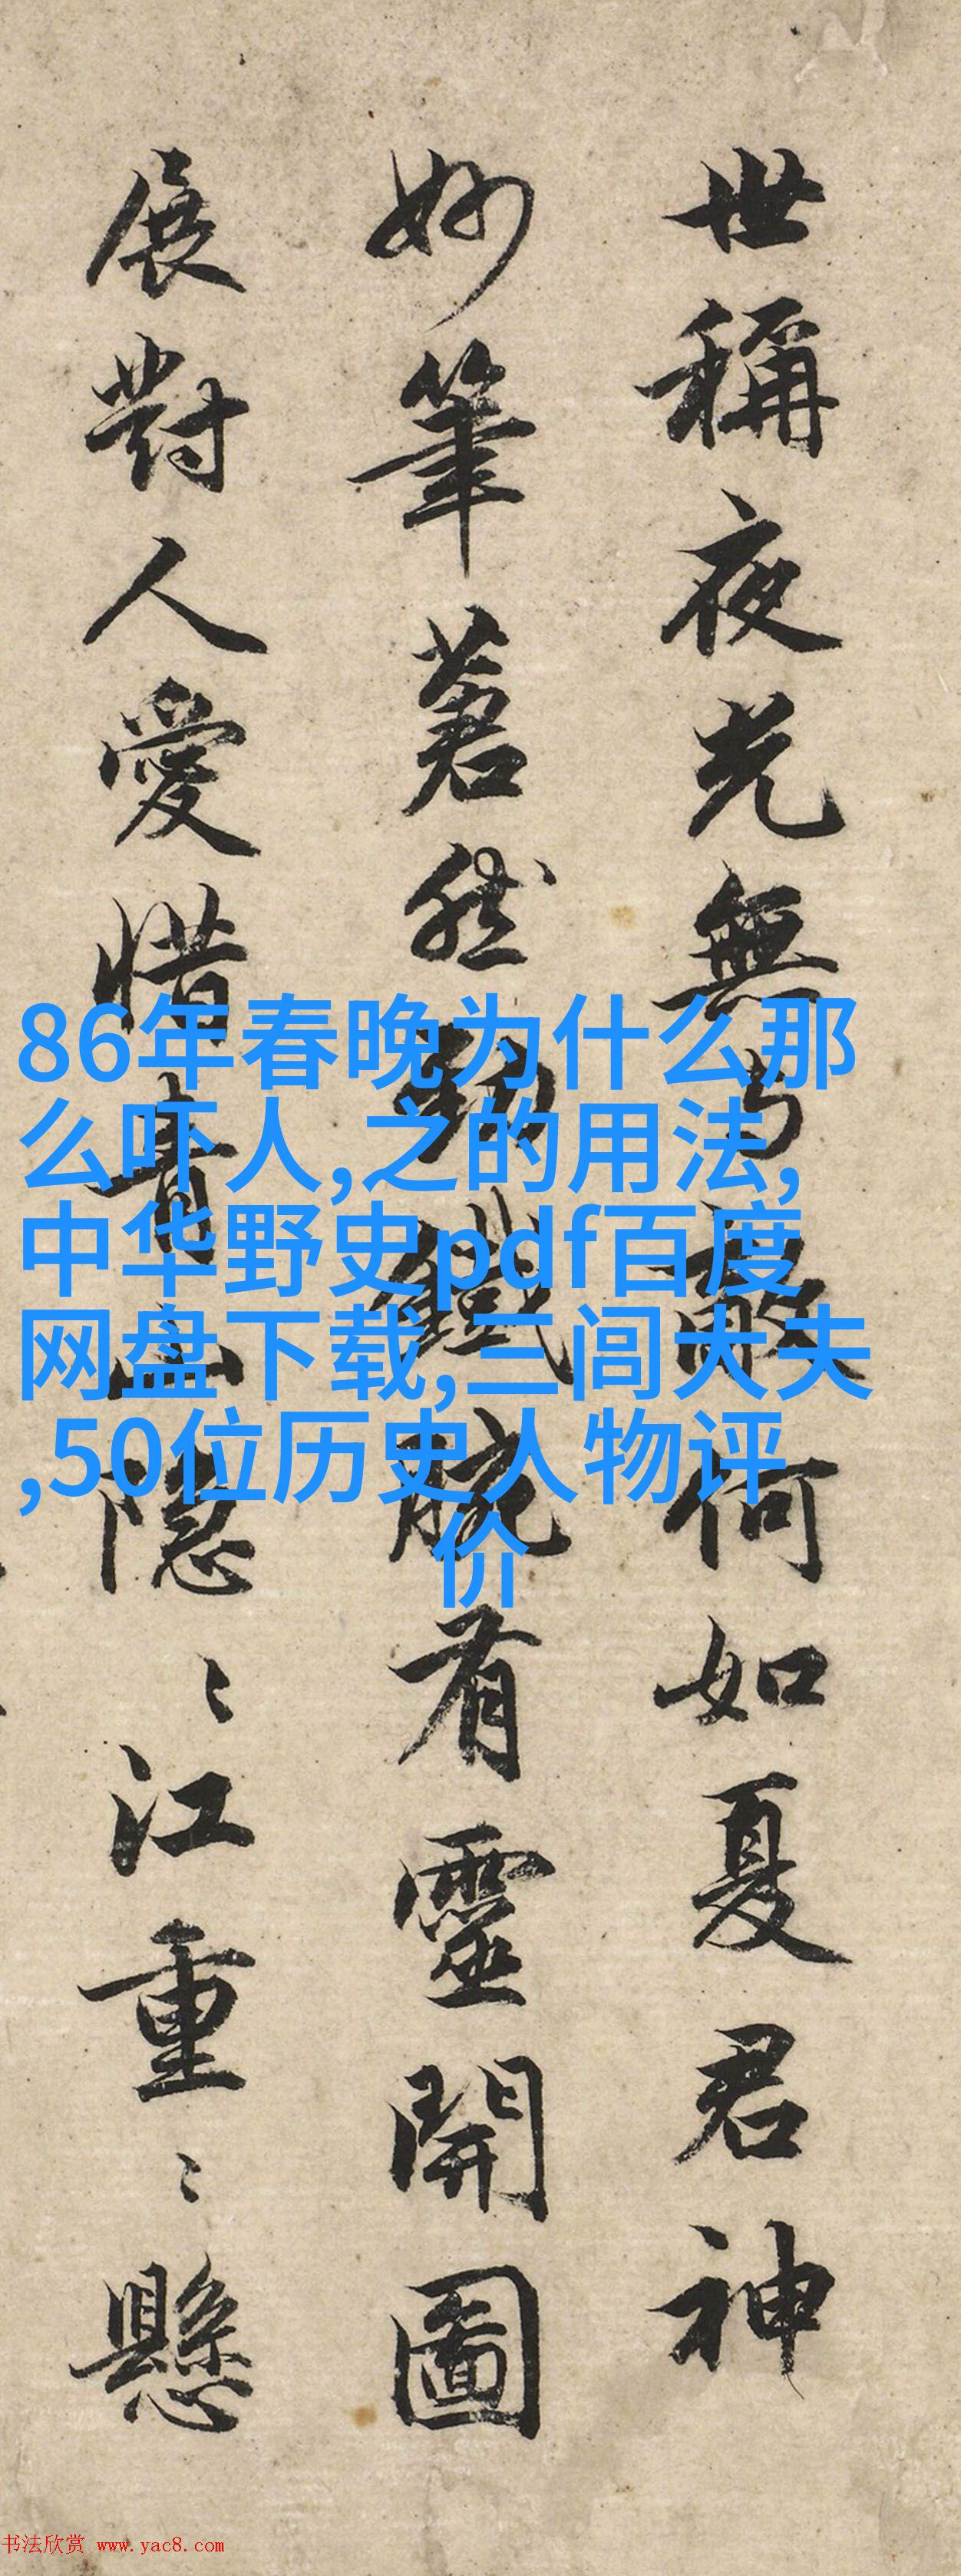 世稱夜光無与敵何如夏君神
妙筆蒼然勁鐵腕有靈開圖
展對人愛惜青山隱〻江重〻懸
86年春晚为什么那
么吓人,之的用法,
中华野史pdf百度
网盘下载,三闾大夫
,50位历史人物评
价
书法欣赏 www.yac8.com